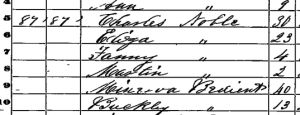 4 Ann " 9
5 87 87 Charles Noble 30
6 Eliza " 23
7 Fanny " 4
8 Martin " 2
9 Minerva Bedient 40
10 Buckley " 13